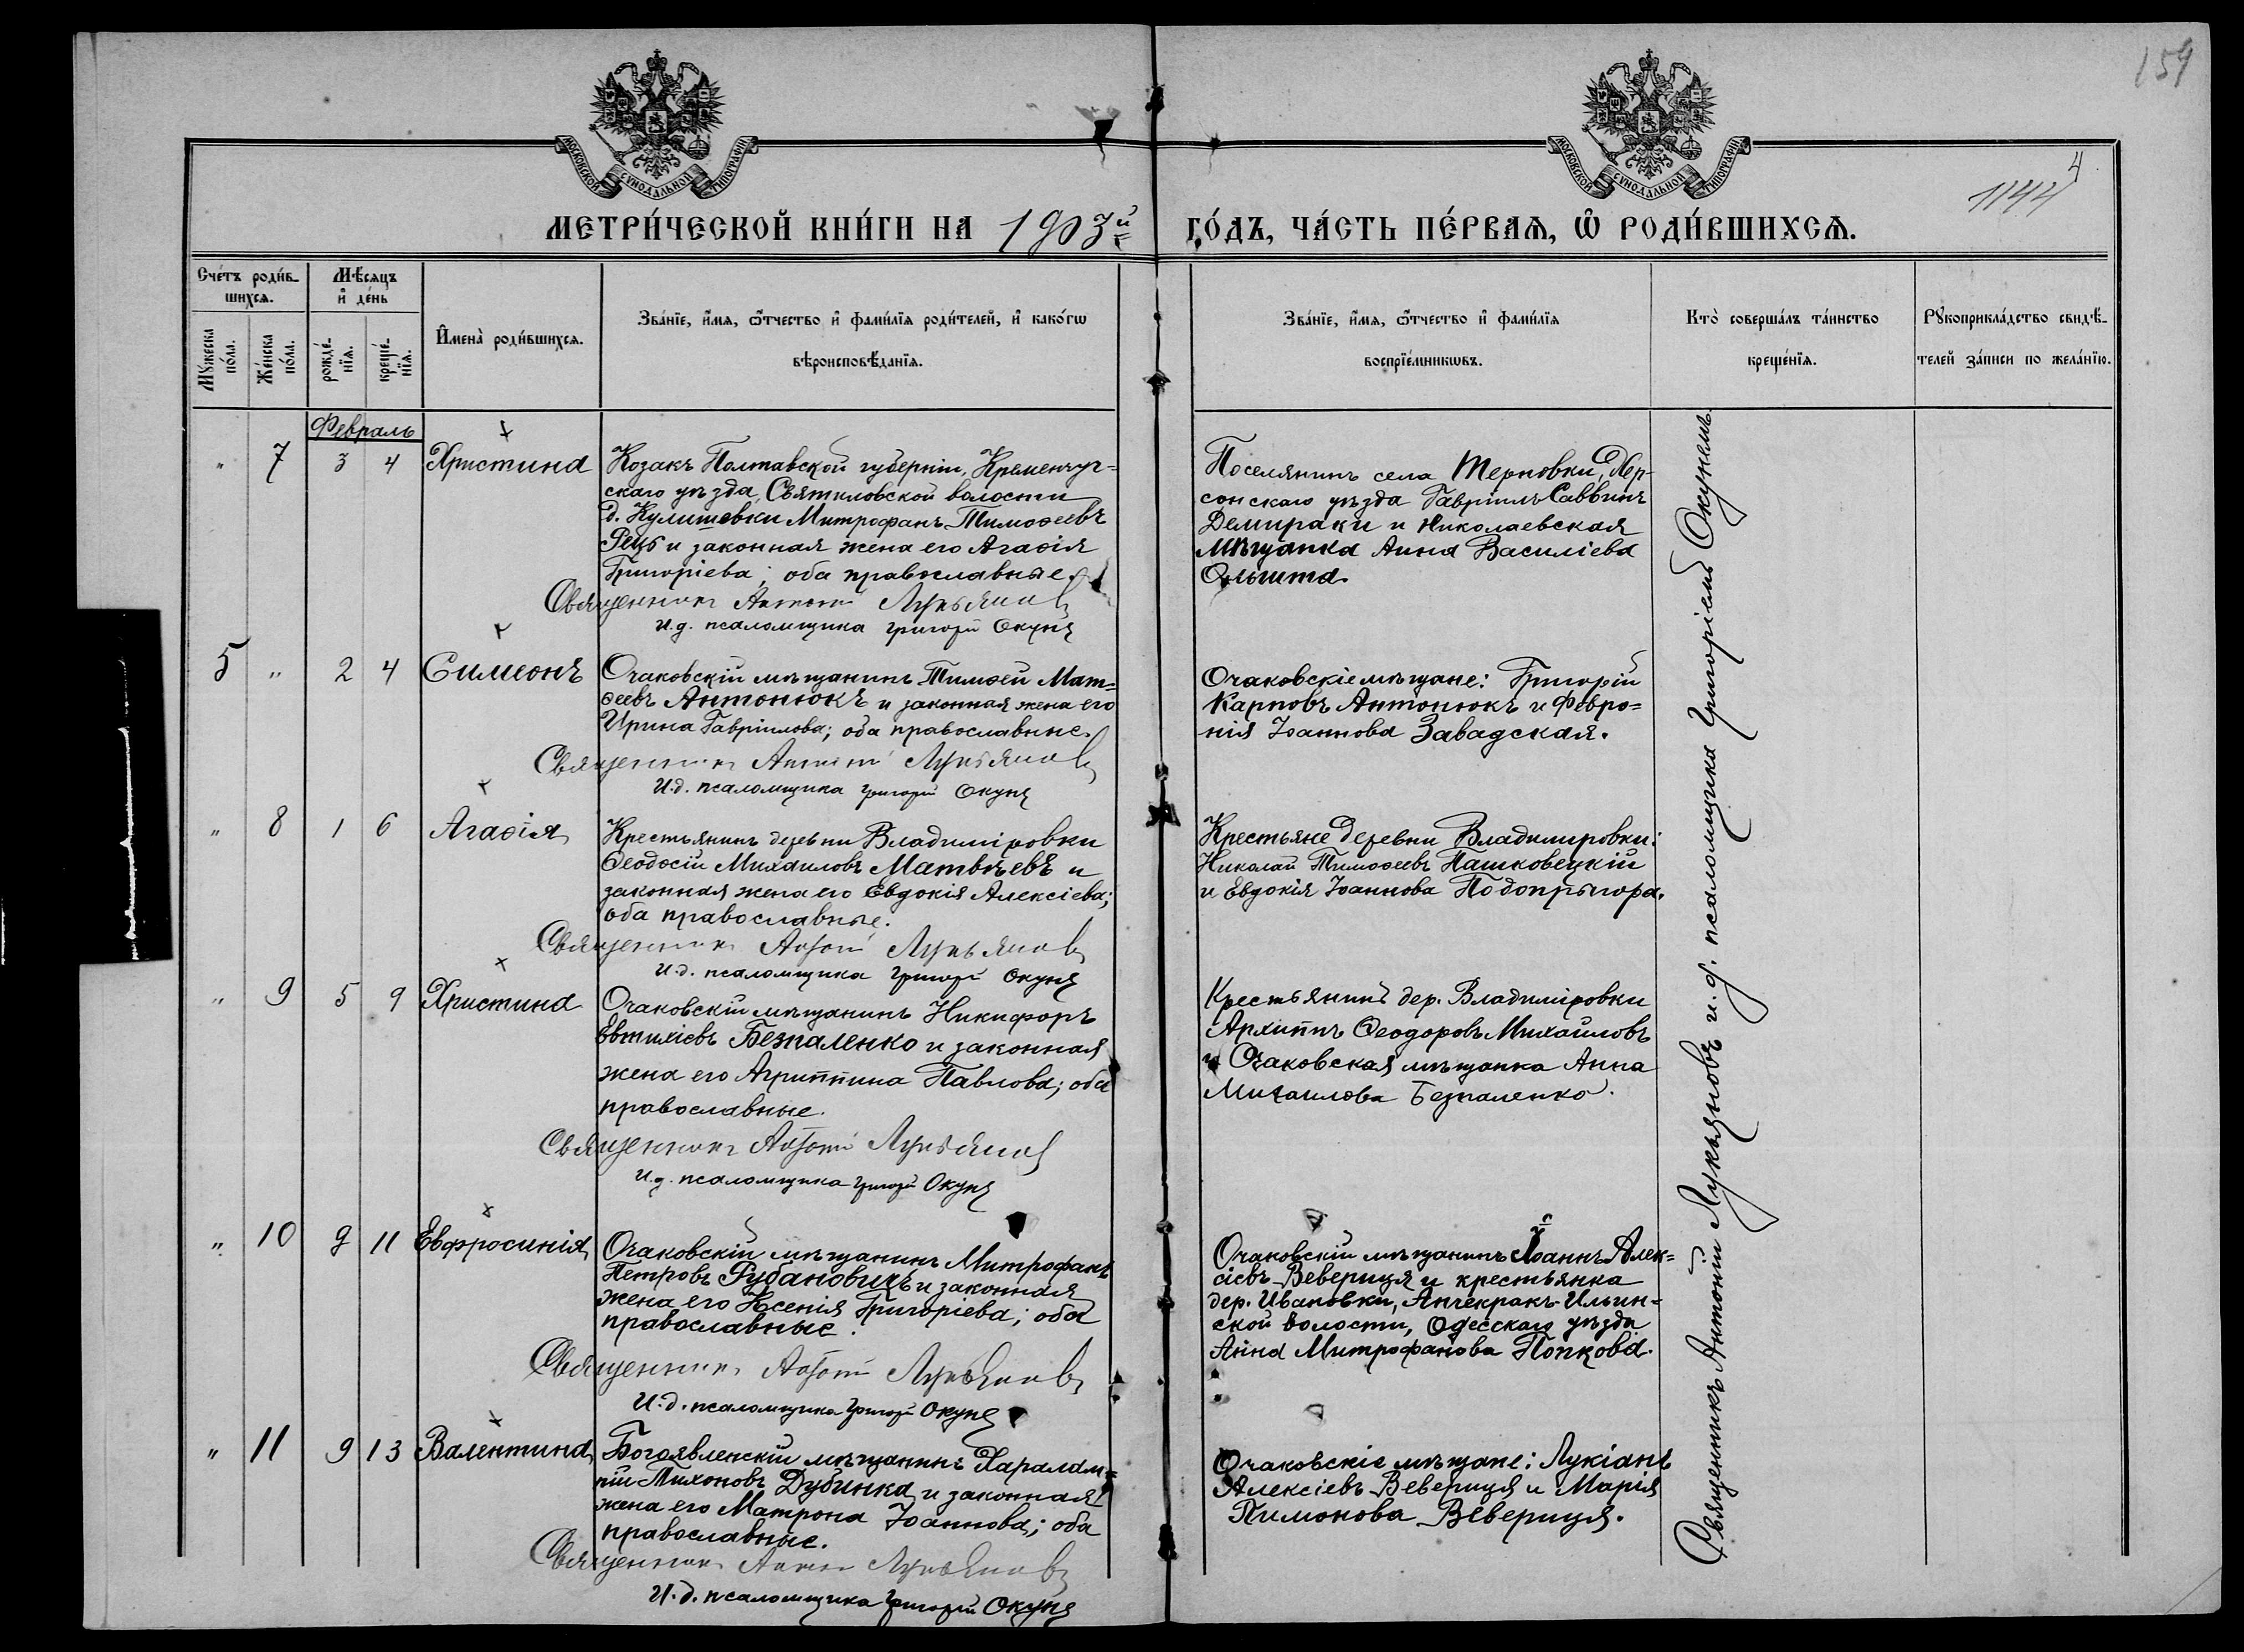 159
4
1144
МОСКОВСКОЙ СѴНОДАЛЬНОЙ ТИПОГРАФІИ
МОСКОВСКОЙ СѴНОДАЛЬНОЙ ТИПОГРАФІИ
МЕТРИ́ЧЕСКОЙ КНИ́ГИ НА 1903й ГО́ДЪ, ЧА́СТЬ ПЕ́РВАѦ, Ѡ҆ РОДИ́ВШИХСѦ.
Сче́тъ роди́в-
шихсѧ.
Мꙋ́жеска по́ла.
Же́нска по́ла.
Мѣ́сѧцъ и҆ де́нь
рожде́-нїѧ.
креще́-нїѧ.
И҆мена̀ роди́вшихсѧ.
Зва́нїе, и҆́мѧ, ѻ҆́тчество и҆ фами́лїѧ роди́телей, и҆ како́гѡ
вѣроисповѣ́данїѧ.
Зва́нїе, и҆́мѧ, ѻ҆́тчество и҆ фами́лїѧ
воспрїе́мникѡвъ.
Кто̀ соверша́лъ та́инство
креще́нїѧ.
Рꙋкоприкла́дство свидѣ́-
телей за́писи по жела́нїю.
Февраль
" 7 3 4 Христина
Козакъ Полтавской губерніи, Кременчуг-
скаго уѣзда, Святиловской волости
д. Кулишевки Митрофанъ Тимоѳеевъ
и законная жена его Агаѳія
Григоріева; оба православные.
Священникъ Антоній Лукьяновъ
И.д. псаломщика Григорій Окунь
Поселянинъ села Терновки, Хер-
сонскаго уѣзда Гавріилъ Саввинъ
Демираки и Николаевская
мѣщанка Анна Василіева
5 " 2 4 Симеонъ
Очаковскій мѣщанинъ Тимоѳей Мат-
ѳеевъ Антонюкъ и законная жена его
Ирина Гавріилова; оба православные.
Священникъ Антоній Лукьяновъ
И.д. псаломщика Григорій Окунь
Очаковскіе мѣщане: Григорій
Карповъ Антонюкъ и Февро=
нія Іоаннова Завадская.
" 8 1 6 Агаѳія
Крестьянинъ деревни Владиміровки
Ѳеодосій Михаиловъ Матвѣевъ и
законная жена его Евдокія Алексіева;
оба православные.
Священникъ Антоній Лукьяновъ
И.д. псаломщика Григорій Окунь
Крестьяне деревни Владиміровки:
Николай Тимоѳеевъ Пашковецкій
и Евдокія Іоаннова Подопрыгора.
" 9 5 9 Христина
Очаковскій мѣщанинъ Никифоръ
Евтихіевъ Безпаленко и законная
жена его Агриппина Павлова; оба
православные.
Священникъ Антоній Лукьяновъ
И.д. псаломщика Григорій Окунь
Крестьянинъ дер. Владиміровки
Архиппъ Ѳеодоровъ Михайловъ
и Очаковская мѣщанка Анна
Михаилова Безпаленко.
" 10 9 11 Евфросинія
Очаковскій мѣщанинъ Митрофанъ
Петровъ Рубановичъ и законная
жена его Ксенія Григоріева; оба
православные.
Священникъ Антоній Лукьяновъ
И.д. псаломщика Григорій Окунь
Очаковскій мѣщанинъ Іоаннъ Алек=
сіевъ Веверица и крестьянка
дер. Ивановки, Анчекракъ-Ильин=
ской волости, Одесскаго уѣзда
Анна Митрофанова Попкова.
" 11 9 13 Валентина
Богоявленскій мѣщанинъ Харалам=
пій Тихоновъ Дубинка и законная
жена его Матрона Іоаннова; оба
православные.
Священникъ Антоній Лукьяновъ
И.д. псаломщика Григорій Окунь
Очаковскіе мѣщане: Лукіанъ
Алексіевъ Веверица и Марія
Пимонова Веверица.
Священникъ Антоній Лукьяновъ и.д. псаломщика Григоріемъ Окунемъ.